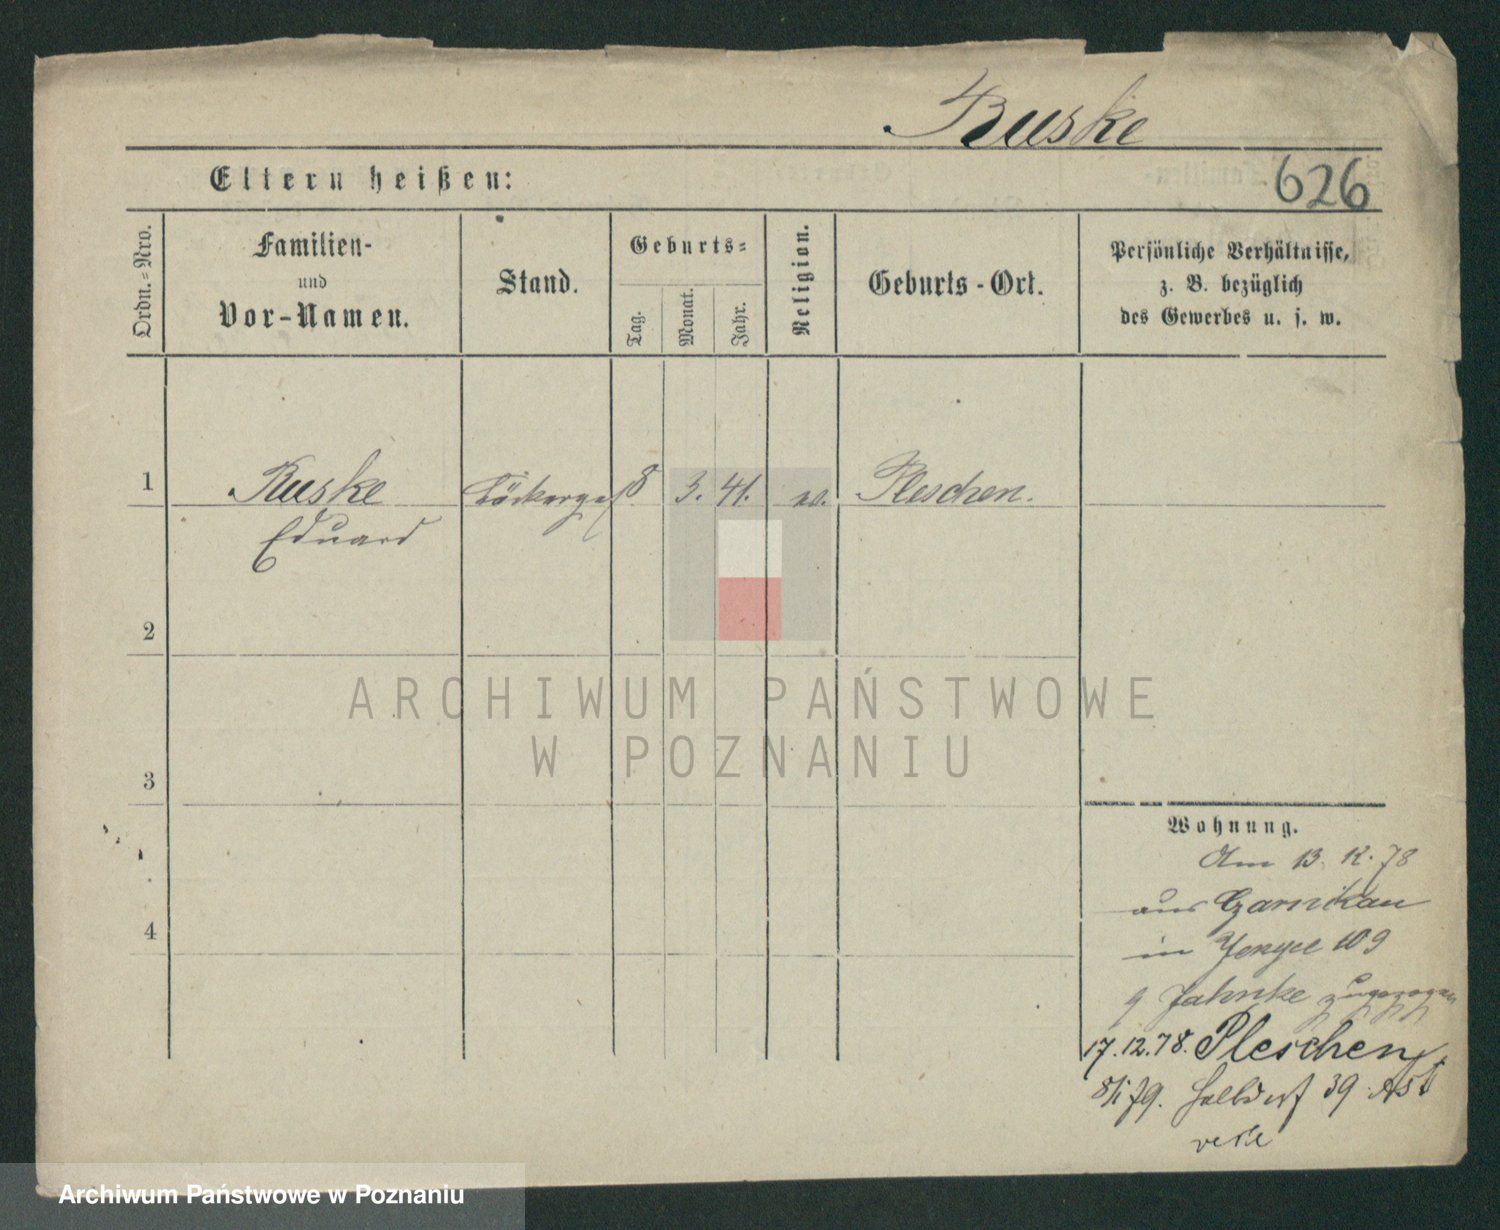 Buske
Eltern heißen:
626
Ordn.=Nro.
Familien-
und
Vor-Namen.
Stand.
Geburts=
Tag.
Monat.
Jahr.
Religion.
Geburts-Ort.
Persönliche Verhältnisse,
z. B. bezüglich
des Gewerbes u. s. w.
1
Buske
Eduard
8
3.
41.
ev.
Pleschen.
2
ARCHIWUM PAŃSTWOWE
W POZNANIU
3
Wohnung.
Am 13. 12. 78
aus Czarnikau
in Jersyce 109
Jahnke zugezogen
17.12.78. Pleschen
8/1 79. Halbdorf 39
4
Archiwum Państwowe w Poznaniu